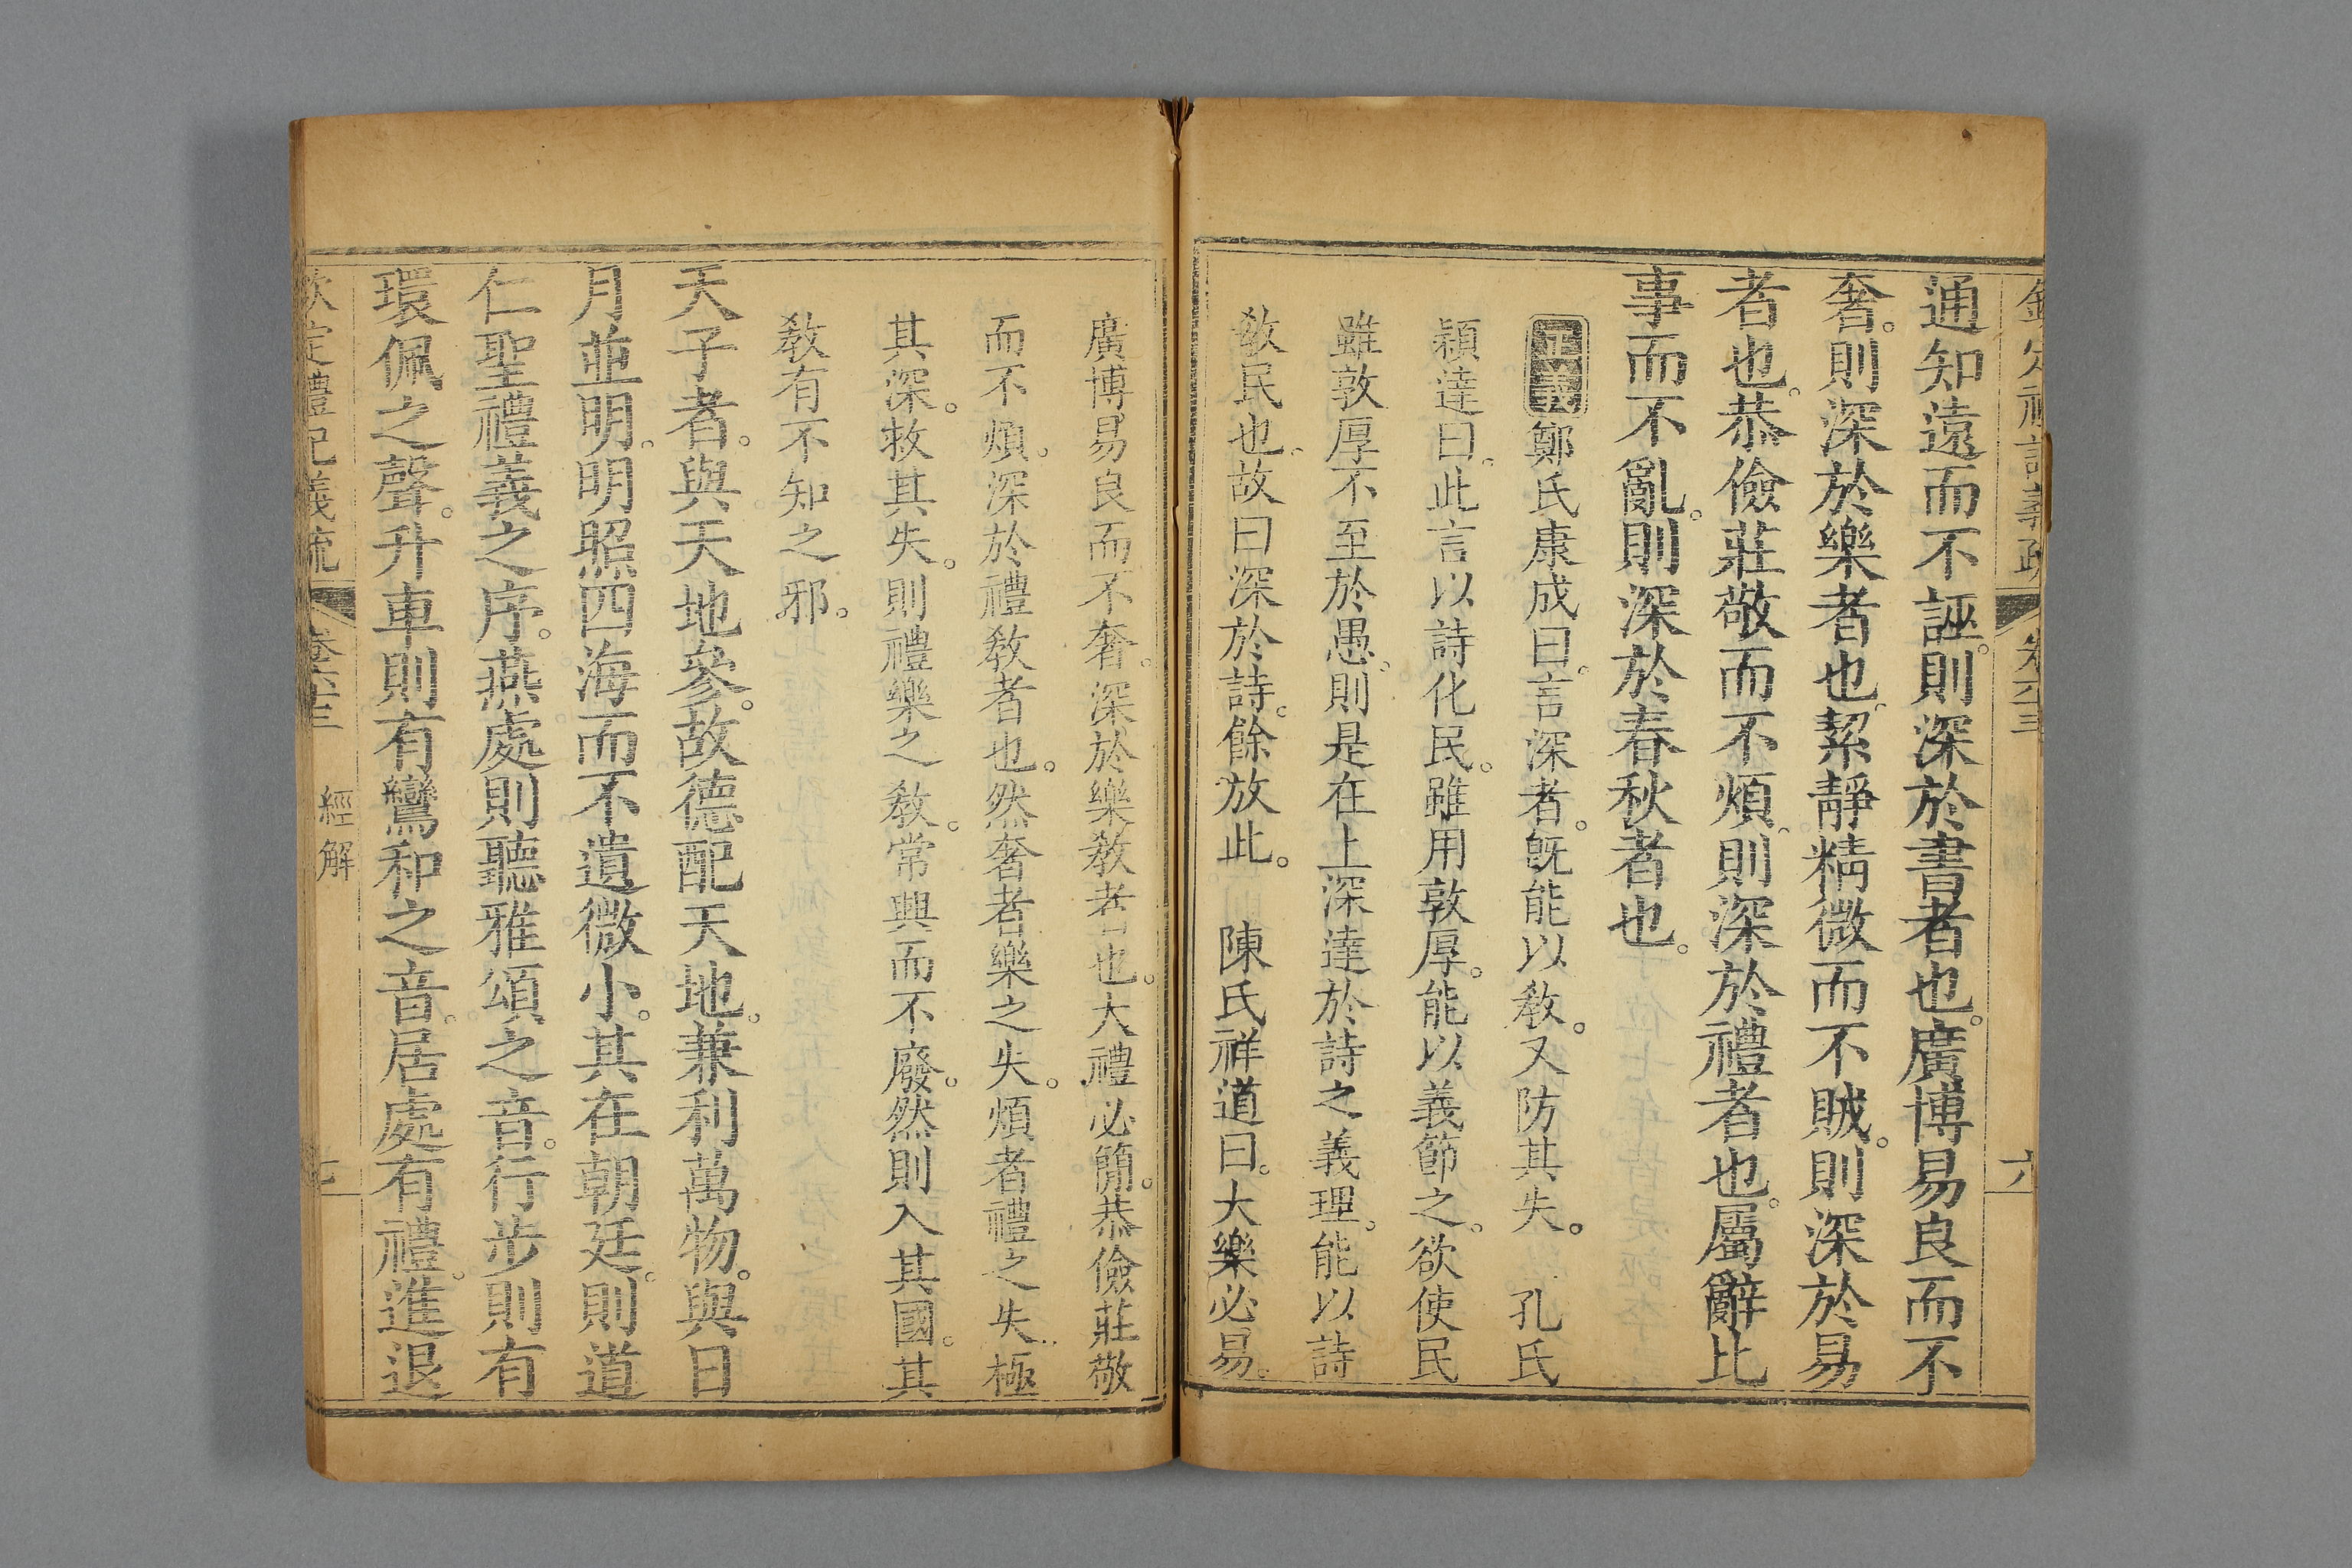 通知遠而不誣。則深於書者也。廣博易良而不
奢。則深於樂者也。絜靜精微而不賊。則深於易
者也。恭儉莊敬而不煩。則深於禮者也。屬辭比
事而不亂。則深於春秋者也。
正義鄭氏康成曰。言深者。旣能以敎。又防其失。 孔氏
穎達曰。此言以詩化民。雖用敦厚。能以義節之。欲使民
雖敦厚不至於愚。則是在上深達於詩之義理。能以詩
敎民也。故曰深於詩。餘放此。 陳氏祥道曰。大樂必易。
六
廣博易良而不奢。深於樂敎者也。大禮必簡。恭儉莊敬
而不煩。深於禮敎者也。然奢者樂之失。煩者禮之失。極
其深。救其失。則禮樂之敎。常興而不廢。然則入其國。其
敎有不知之邪。
天子者。與天地參。故德配天地。兼利萬物。與日
月並明。明照四海而不遺微小。其在朝廷。則道
仁聖禮義之序。燕處則聽雅頌之音。行步則有
環佩之聲。升車則有鸞和之音。居處有禮。進退
欽定禮記義疏 卷六十三 經解 七